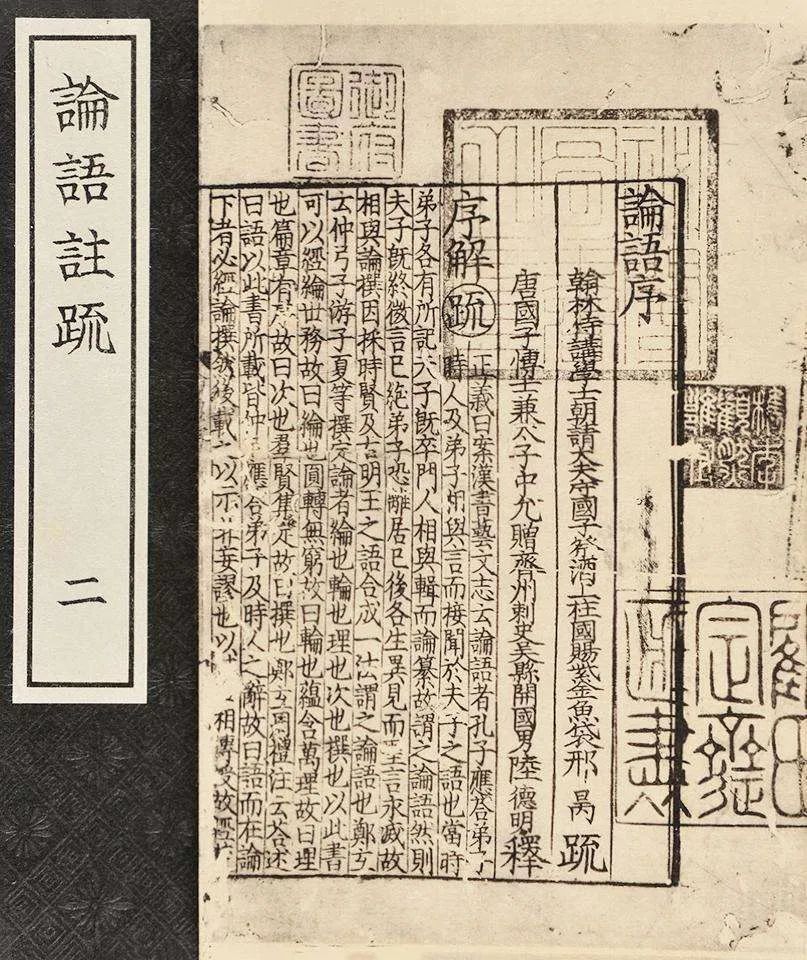 論語註疏
二
御府圖書
論語序
翰林侍講學士朝請大夫守國子祭酒上柱國賜紫金魚袋邢 昺 疏
唐國子博士兼太子中允贈齊州刺史吳縣開國男陸 德明 釋
序解 疏 正義曰案漢書藝文志云論語者孔子應荅弟子
時人及弟子相與言而接聞於夫子之語也當時
弟子各有所記夫子旣卒門人相與輯而論纂故謂之論語然則
夫子旣終微言已絶弟子恐離居已後各生異見而聖言永滅故
相與論撰因採時賢及古明王之語合成一法謂之論語也鄭玄
云仲弓子游子夏等撰定論者綸也輪也理也次也撰也以此書
可以經綸世務故曰綸也圓轉無窮故曰輪也蘊含萬理故曰理
也篇章有序故曰次也羣賢集定故曰撰也鄭玄周禮注云荅述
曰語以此書所載皆仲尼應荅弟子及時人之辭故曰語而在論
下者必經論撰然後載之以示非妄謬也以 相傳受故經